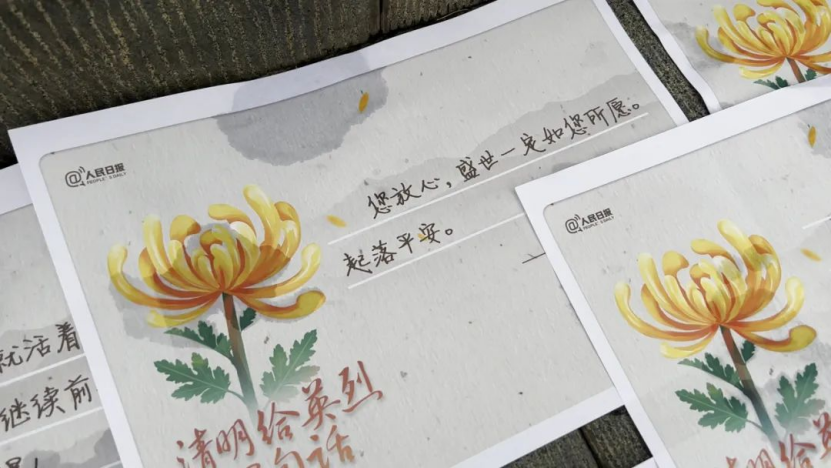 就活着
继续前
@人民日报
PEOPLE'S DAILY
您放心，盛世一定如您所愿。
起落平安。
清明给英烈
句话
@人民日报
清明给英